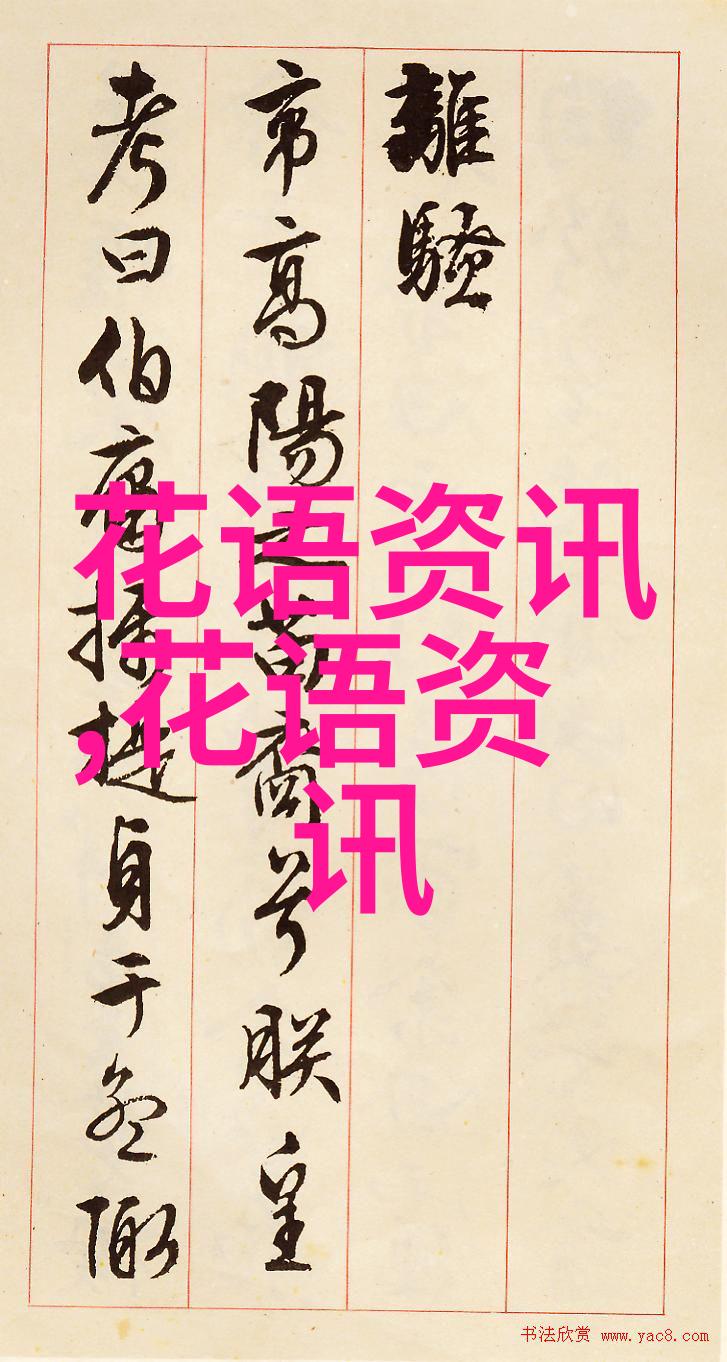 離騷
帝高陽之苗裔兮朕皇
考曰伯庸攝提貞于孟陬
花语资讯
,花语资
讯
书法欣赏 www.yac8.com